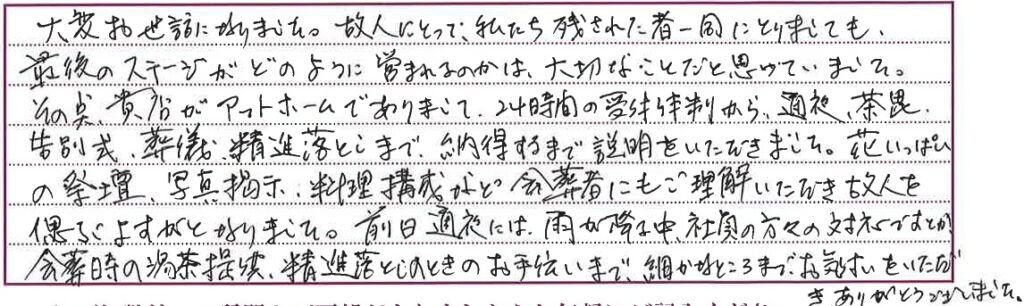 大変お世話になりました。故人にとって、私たち残された者一同にとりましても、
最後のステージがどのように営まれるのかは、大切なことだと思っていました。
その点、貴店がアットホームでありまして、24時間の受付体制から、通夜、荼毘、
告別式、葬儀、精進落としまで、納得するまで説明をいただきました。花いっぱい
の祭壇、写真掲示、料理構成など会葬者にもご理解いただき故人を
偲ぶよすがとなりました。前日通夜には、雨が降る中、社員の方々の対応ですとか
会葬時の湯茶提供、精進落としのときのお手伝いまで、細かなところまでお気づかいをいただ
きありがとうございました。